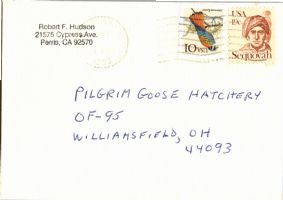 Robert F. Hudson
21575 Cypress Ave.
Perris, CA 92570
10 USA
USA
Sequoyah
PILGRIM GOOSE HATCHERY
OF-95
WILLIAMSFIELD, OH
44093